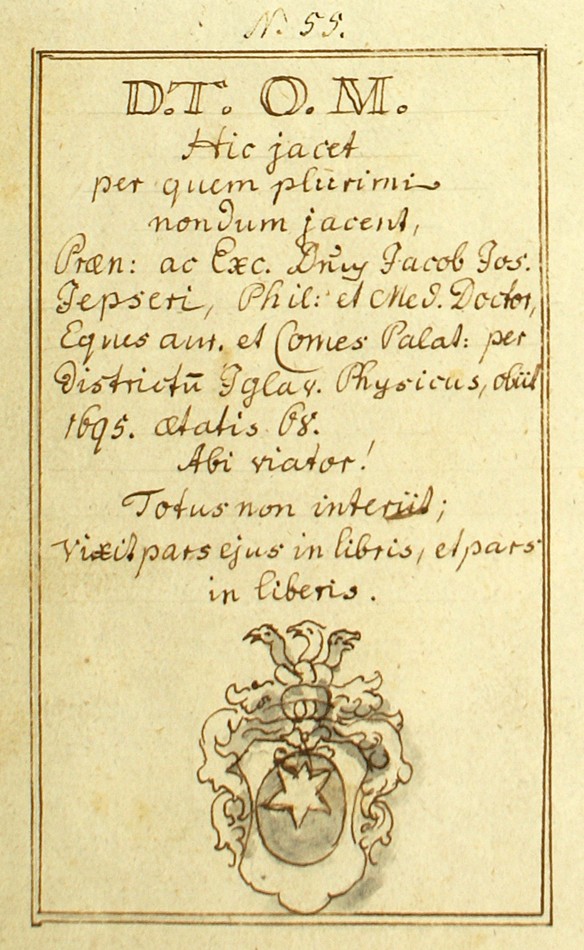 N. 55.
D.T. O. M.
Hic jacet
per quem plurimi
nondum jacent,
Præn: ac Exc. Dn̄us Jacob Jos.
Jepseri, Phil: et Med. Doctor,
Eques aur. et Comes Palat: per
districtū Iglav. Physicus, obiit
1695. ætatis 68.
Abi viator!
Totus non interiit;
Vixit pars ejus in libris, et pars
in liberis.